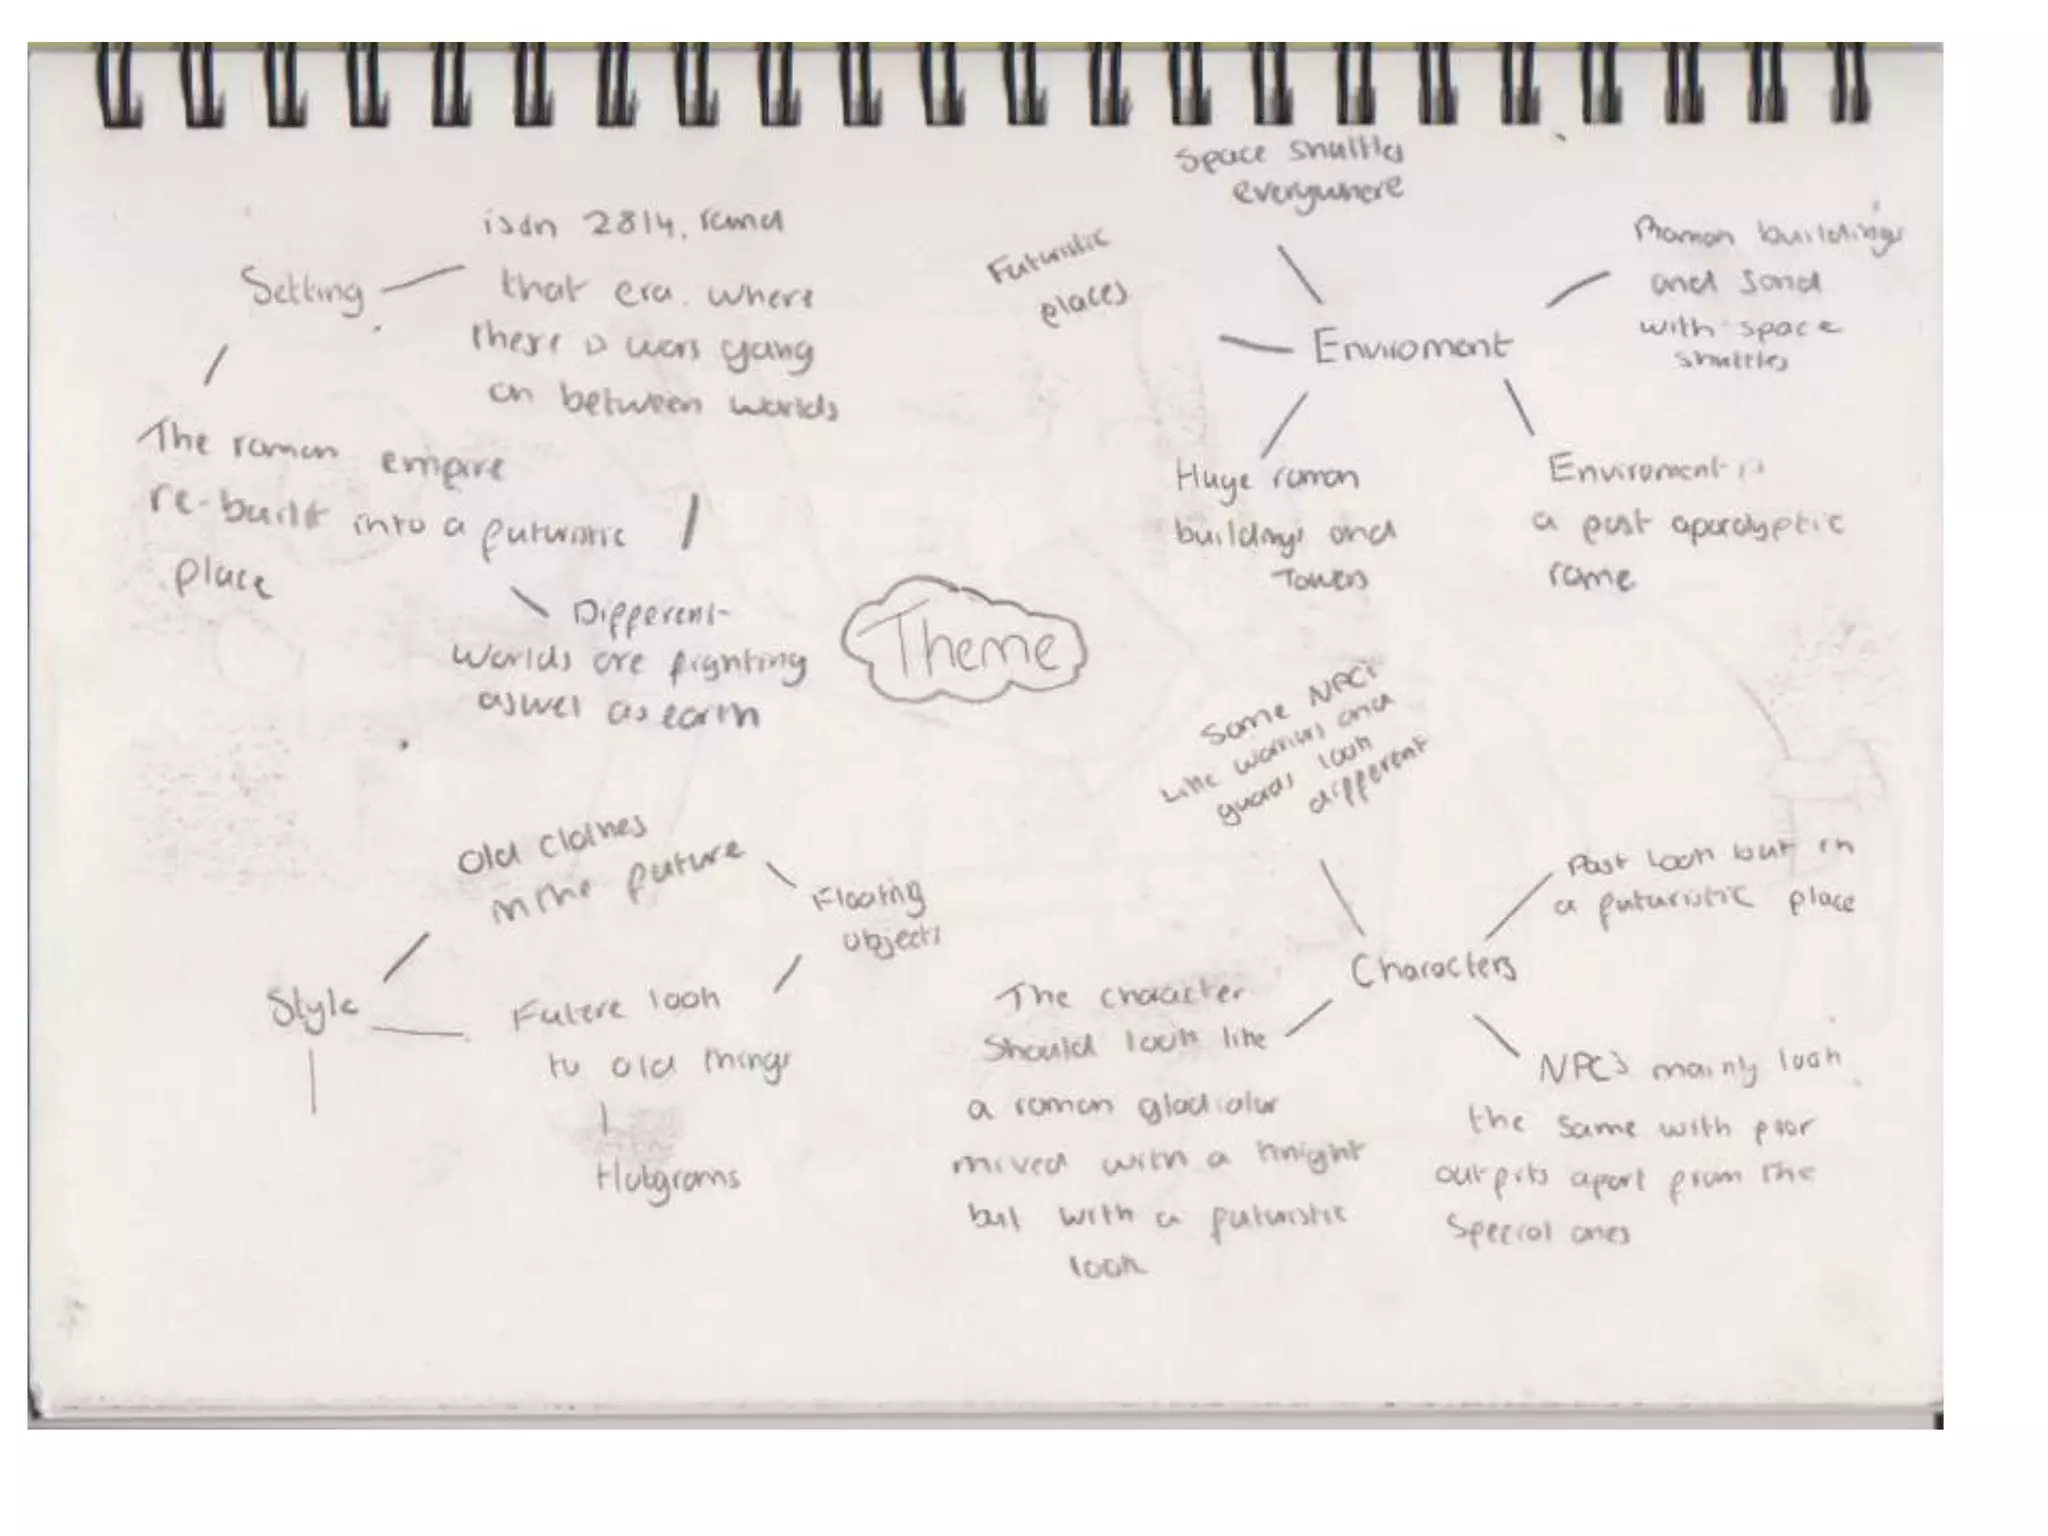 Setting
is in 2814, round
that era. where
there is wars going
on between worlds
The roman empire
re-built into a futuristic
place
Different
worlds are fighting
aswel as earth
Theme
Space shuttles
everywhere
Futuristic
places
Enviroment
Roman buildings
and sand
with space
shuttles
Huge roman
buildings and
Towers
Enviroment is
a post apocalyptic
rome
Style
Old clothes
in the future
Floating
objects
Future look
to old things
Holograms
Some NPCs
like warriors and
guards look
different
Characters
Past look but in
a futuristic place
The character
Should look like
a roman gladiator
mixed with a knight
but with a futuristic
look
NPCs mainly look
the same with poor
outfits apart from the
Special ones